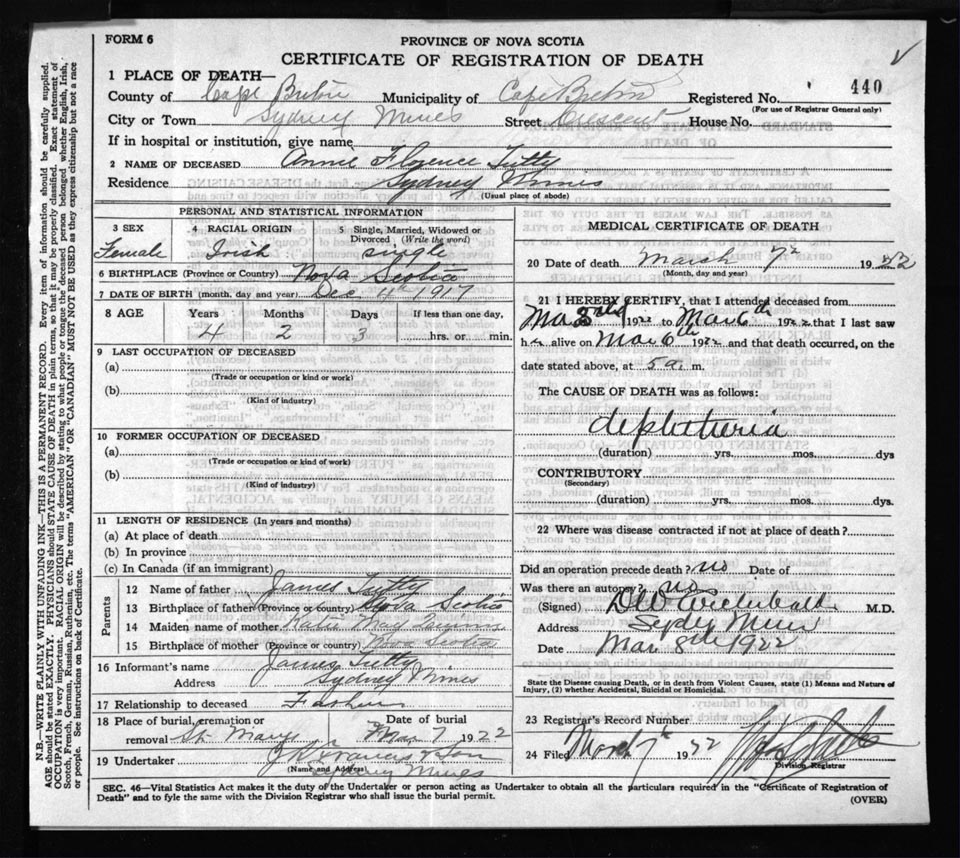 FORM 6
PROVINCE OF NOVA SCOTIA
CERTIFICATE OF REGISTRATION OF DEATH
1 PLACE OF DEATH—
County of Cape Breton Municipality of Cape Breton Registered No. 440
(For use of Registrar General only)
City or Town Sydney Mines Street Crescent House No.
If in hospital or institution, give name
2 NAME OF DECEASED Annie Florence Tutty
Residence Sydney Mines
(Usual place of abode)
PERSONAL AND STATISTICAL INFORMATION
3 SEX 4 RACIAL ORIGIN 5 Single, Married, Widowed or Divorced (Write the word)
Female Irish single
6 BIRTHPLACE (Province or Country) Nova Scotia
7 DATE OF BIRTH (month, day and year) Dec 4th 1917
8 AGE Years Months Days If less than one day,
4 2 3 hrs. or min.
9 LAST OCCUPATION OF DECEASED
(a)
(Trade or occupation or kind or work)
(b)
(Kind of industry)
10 FORMER OCCUPATION OF DECEASED
(a)
(Trade or occupation or kind of work)
(b)
(Kind of industry)
11 LENGTH OF RESIDENCE (In years and months)
(a) At place of death
(b) In province
(c) In Canada (if an immigrant)
Parents
12 Name of father James Tutty
13 Birthplace of father (Province or country) Nova Scotia
14 Maiden name of mother Katie May
15 Birthplace of mother (Province or country) Nova Scotia
16 Informant's name James Tutty
Address Sydney Mines
17 Relationship to deceased Father
18 Place of burial, cremation or removal St. Marys Date of burial Mar 7 1922
19 Undertaker & Son
(Name and Address) Sydney Mines
MEDICAL CERTIFICATE OF DEATH
20 Date of death March 7th 1922
(Month, day and year)
21 I HEREBY CERTIFY, that I attended deceased from
Mar 3rd 1922 to Mar 6th 1922 that I last saw
h alive on Mar 6th 1922 and that death occurred, on
date stated above, at 5 a. m.
The CAUSE OF DEATH was as follows:
diphtheria
(duration) yrs. mos. dys
CONTRIBUTORY
(Secondary)
(duration) yrs. mos. dys.
22 Where was disease contracted if not at place of death?
Did an operation precede death? no Date of
Was there an autopsy? no
(Signed) DW Archibald M.D.
Address Sydney Mines
Date Mar 8th 1922
State the Disease causing Death, or in death from Violent Causes, state (1) Means and Nature of
Injury, (2) whether Accidental, Suicidal or Homicidal.
23 Registrar's Record Number
24 Filed March 7th 1922
Division Registrar
SEC. 46—Vital Statistics Act makes it the duty of the Undertaker or person acting as Undertaker to obtain all the particulars required in the "Certificate of Registration of
Death" and to fyle the same with the Division Registrar who shall issue the burial permit.
(OVER)
N.B.—WRITE PLAINLY WITH UNFADING INK—THIS IS A PERMANENT RECORD. Every item of information should be carefully supplied.
AGE should be stated EXACTLY. PHYSICIANS should STATE CAUSE OF DEATH in plain terms, so that it may be properly classified. Exact statement of
OCCUPATION is very important. RACIAL ORIGIN will be described by stating to what people or tongue the deceased person belonged whether English, Irish,
Scotch, French, German, Russian, Ruthenian, etc. The terms "AMERICAN" OR "CANADIAN" MUST NOT BE USED as they express citizenship but not a race
or people. See instructions on back of Certificate.